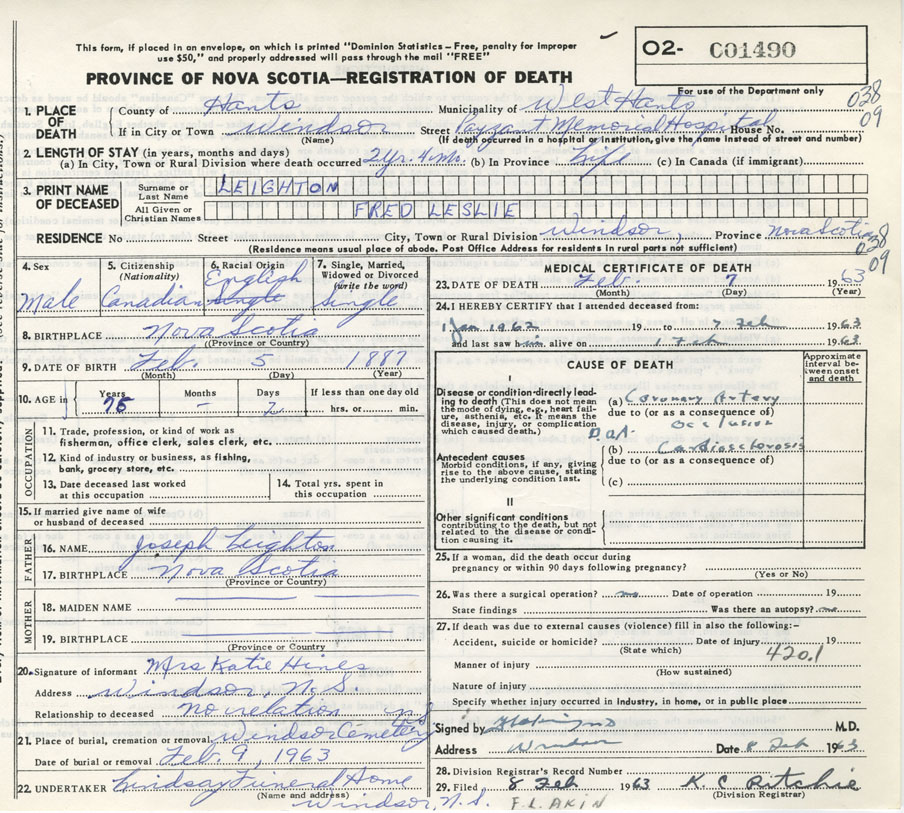 This form, if placed in an envelope, on which is printed "Dominion Statistics – Free, penalty for improper
use $50," and properly addressed will pass through the mail "FREE"
O2- C01490
PROVINCE OF NOVA SCOTIA—REGISTRATION OF DEATH
For use of the Department only
038
09
1. PLACE OF DEATH
County of Hants Municipality of West Hants
If in City or Town Windsor Street Payzant Memorial Hospital House No.
(Name) (If death occurred in a hospital or institution, give the name instead of street and number)
2. LENGTH OF STAY (in years, months and days)
(a) In City, Town or Rural Division where death occurred 2 Yr. 4 Mo. (b) In Province Life (c) In Canada (if immigrant)
3. PRINT NAME OF DECEASED
Surname or Last Name LEIGHTON
All Given or Christian Names FRED LESLIE
RESIDENCE No Street City, Town or Rural Division Windsor, Province Nova Scotia
(Residence means usual place of abode. Post Office Address for residents in rural parts not sufficient)
038
09
4. Sex
Male
5. Citizenship (Nationality)
Canadian
6. Racial Origin
English
Single
7. Single, Married, Widowed or Divorced (write the word)
Single
8. BIRTHPLACE Nova Scotia
(Province or Country)
9. DATE OF BIRTH Feb. 5 1887
(Month) (Day) (Year)
10. AGE in Years Months Days If less than one day old
76 – 2 hrs. or min.
OCCUPATION
11. Trade, profession, or kind of work as
fisherman, office clerk, sales clerk, etc.
12. Kind of industry or business, as fishing,
bank, grocery store, etc.
13. Date deceased last worked
at this occupation
14. Total yrs. spent in
this occupation
15. If married give name of wife
or husband of deceased
FATHER
16. NAME Joseph Leighton
17. BIRTHPLACE Nova Scotia
(Province or Country)
MOTHER
18. MAIDEN NAME
19. BIRTHPLACE
(Province or Country
20. Signature of informant Mrs Katie Hines
Address Windsor, N.S.
Relationship to deceased no relation
21. Place of burial, cremation or removal Windsor Cemetery N.S.
Date of burial or removal Feb. 9, 1963
22. UNDERTAKER Lindsay Funeral Home
(Name and address)
Windsor, N.S.
MEDICAL CERTIFICATE OF DEATH
23. DATE OF DEATH Feb. 7 1963
(Month) (Day) (Year)
24. I HEREBY CERTIFY that I attended deceased from:
1 Jan 1962 19 to 7 Feb 1963
and last saw him alive on 1 Feb 1963
CAUSE OF DEATH
Approximate interval between onset and death
I
Disease or condition directly leading to death (This does not mean
the mode of dying, e.g., heart failure, asthenia, etc. It means the
disease, injury, or complication
which caused death.)
(a) Coronary Artery
due to (or as a consequence of)
Occlusion
D.O.A.
Antecedent causes
Morbid conditions, if any, giving
rise to the above cause, stating
the underlying condition last.
(b) Cardiosclerosis
due to (or as a consequence of)
(c)
II
Other significant conditions
contributing to the death, but not
related to the disease or condition causing it.
25. If a woman, did the death occur during
pregnancy or within 90 days following pregnancy?
(Yes or No)
26. Was there a surgical operation? no Date of operation 19
State findings Was there an autopsy? no
27. If death was due to external causes (violence) fill in also the following:-
Accident, suicide or homicide? Date of injury 19
(State which)
420.1
Manner of injury
(How sustained)
Nature of injury
Specify whether injury occurred in Industry, in home, or in public place
Signed by M.D.
Address Windsor Date 8 Feb 1963
28. Division Registrar's Record Number
29. Filed 8 Feb 1963 K. C Ritchie
(Division Registrar)
F. L. AKIN